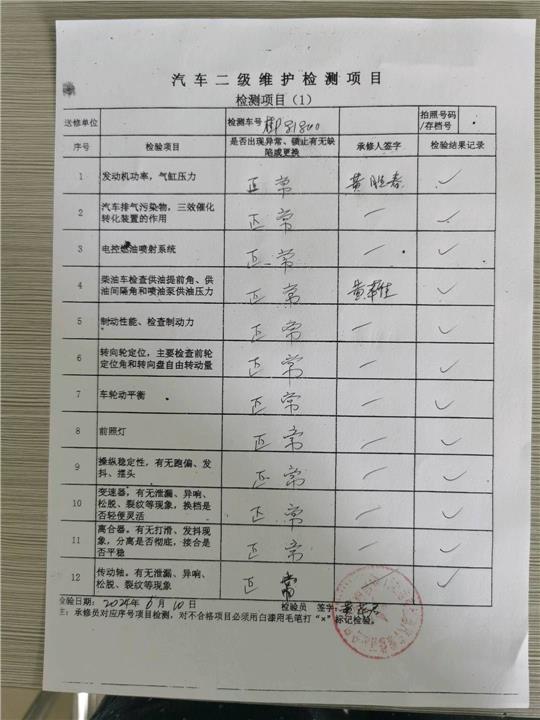 汽车二级维护检测项目
检测项目（1）
送修单位 检测车号 81800 拍照号码/存档号
序号 检验项目 是否出现异常、锁止有无缺陷或更换 承修人签字 检验结果记录
1 发动机功率，气缸压力 正常 黄胜春 ✓
2 汽车排气污染物，三效催化转化装置的作用 正常 一 ✓
3 电控燃油喷射系统 正常 一 ✓
4 柴油车检查供油提前角、供油间隔角和喷油泵供油压力 正常 ✓
5 制动性能、检查制动力 正常 一 ✓
6 转向轮定位，主要检查前轮定位角和转向盘自由转动量 正常 一 ✓
7 车轮动平衡 正常 一 ✓
8 前照灯 正常 一 ✓
9 操纵稳定性，有无跑偏、发抖、摆头 正常 一 ✓
10 变速器，有无泄漏、异响、松脱、裂纹等现象，换档是否轻便灵活 正常 一 ✓
11 离合器，有无打滑、发抖现象，分离是否彻底，接合是否平稳 正常 一 ✓
12 传动轴，有无泄漏、异响、松脱、裂纹等现象 正常 ✓
检验日期：2024年6月10日 检验员 签字：
主：承修员对应序号项目检测，对不合格项目必须用白漆用毛笔打“×”标记检验。